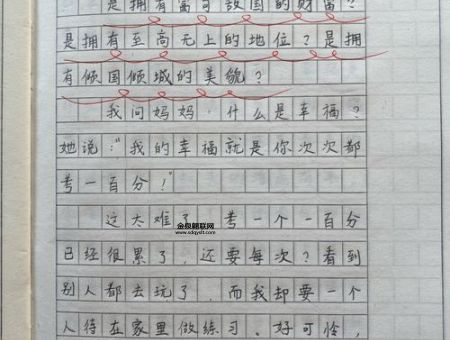 是拥有富可敌国的财富？
是拥有至高无上的地位？是拥
有倾国倾城的美貌？
我问妈妈：什么是幸福？
她说："我的幸福就是你次次都
考一百分！"
这太难了，考一个一百分
金泉朝联网
www.sdqyslt.com
已经很累了，还要每次？看到
别人都去玩了，而我却要一个
人待在家里做练习。好可怜，